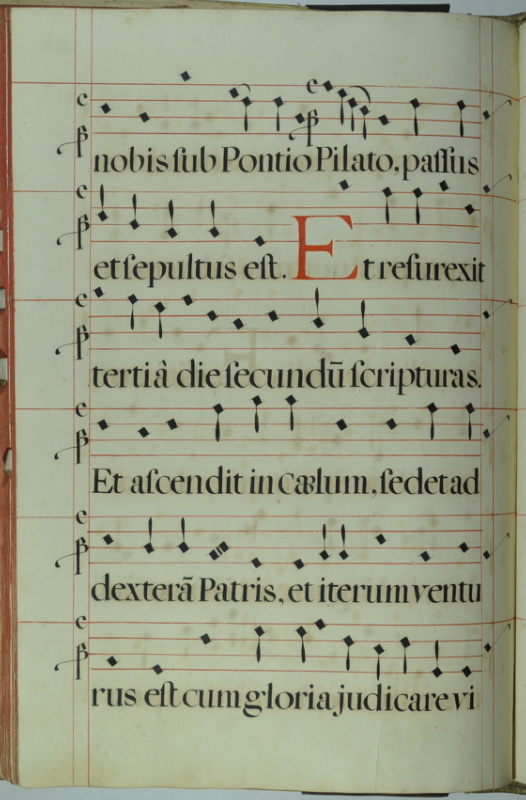 nobis ſub Pontio Pilato, paſſus
et ſepultus eſt. Et reſurexit
tertiâ die ſecundū ſcripturas.
Et aſcendit in cælum, ſedet ad
dexterā Patris, et iterum ventu
rus eſt cum gloria judicare vi